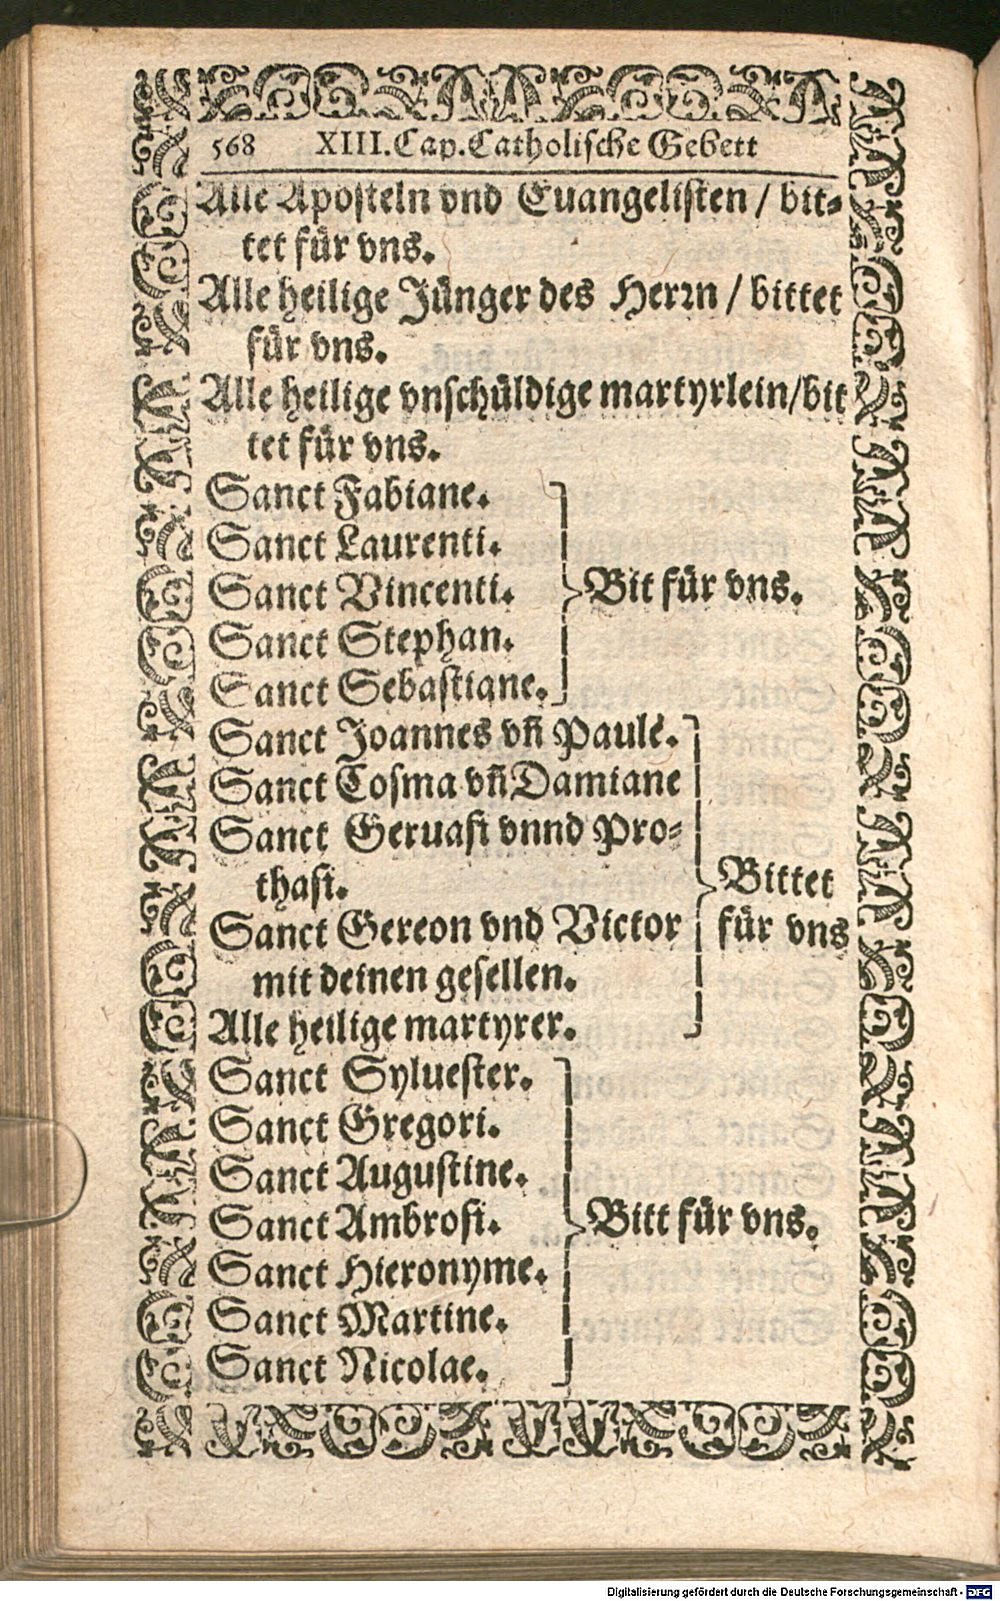 568 XIII.Cap.Catholische Gebett
Alle Aposteln vnd Euangelisten / bit-
tet für vns.
Alle heilige Jünger des Herꝛn / bittet
für vns.
Alle heilige vnschüldige martyrlein/bit
tet für vns.
Sanct Fabiane.
Sanct Laurenti.
Sanct Vincenti.
Sanct Stephan.
Sanct Sebastiane.
Bit für vns.
Sanct Joannes vñ Paule.
Sanct Cosma vñ Damiane
Sanct Geruasi vnnd Pro-
thasi.
Sanct Gereon vnd Victor
mit deinen gesellen.
Alle heilige martyrer.
Bittet
für vns
Sanct Syluester.
Sanct Gregori.
Sanct Augustine.
Sanct Ambrosi.
Sanct Hieronyme.
Sanct Martine.
Sanct Nicolae.
Bitt für vns.
Digitalisierung gefördert durch die Deutsche Forschungsgemeinschaft - DFG